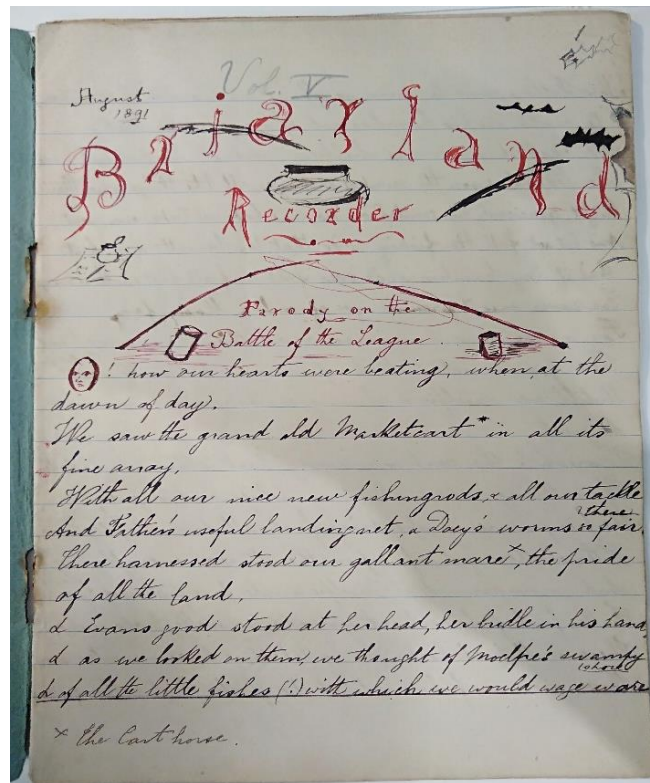 Vol. V
August
1891
Briarland
Recorder
Parody on the
Battle of the League.
O! how our hearts were beating, when, at the
dawn of day,
We saw the grand old Marketcart * in all its
fine array,
With all our nice new fishingrods, & all our tackle
there
And Father's useful landingnet, & Docy's worms so fair.
There harnessed stood our gallant mare x, the pride
of all the land,
& Evans good stood at her head, her bridle in his hand,
& as we looked on them, we thought of Moelfre's swampy
shore
& of all the little fishes (!) with which we would wage ware
x The Cart horse.